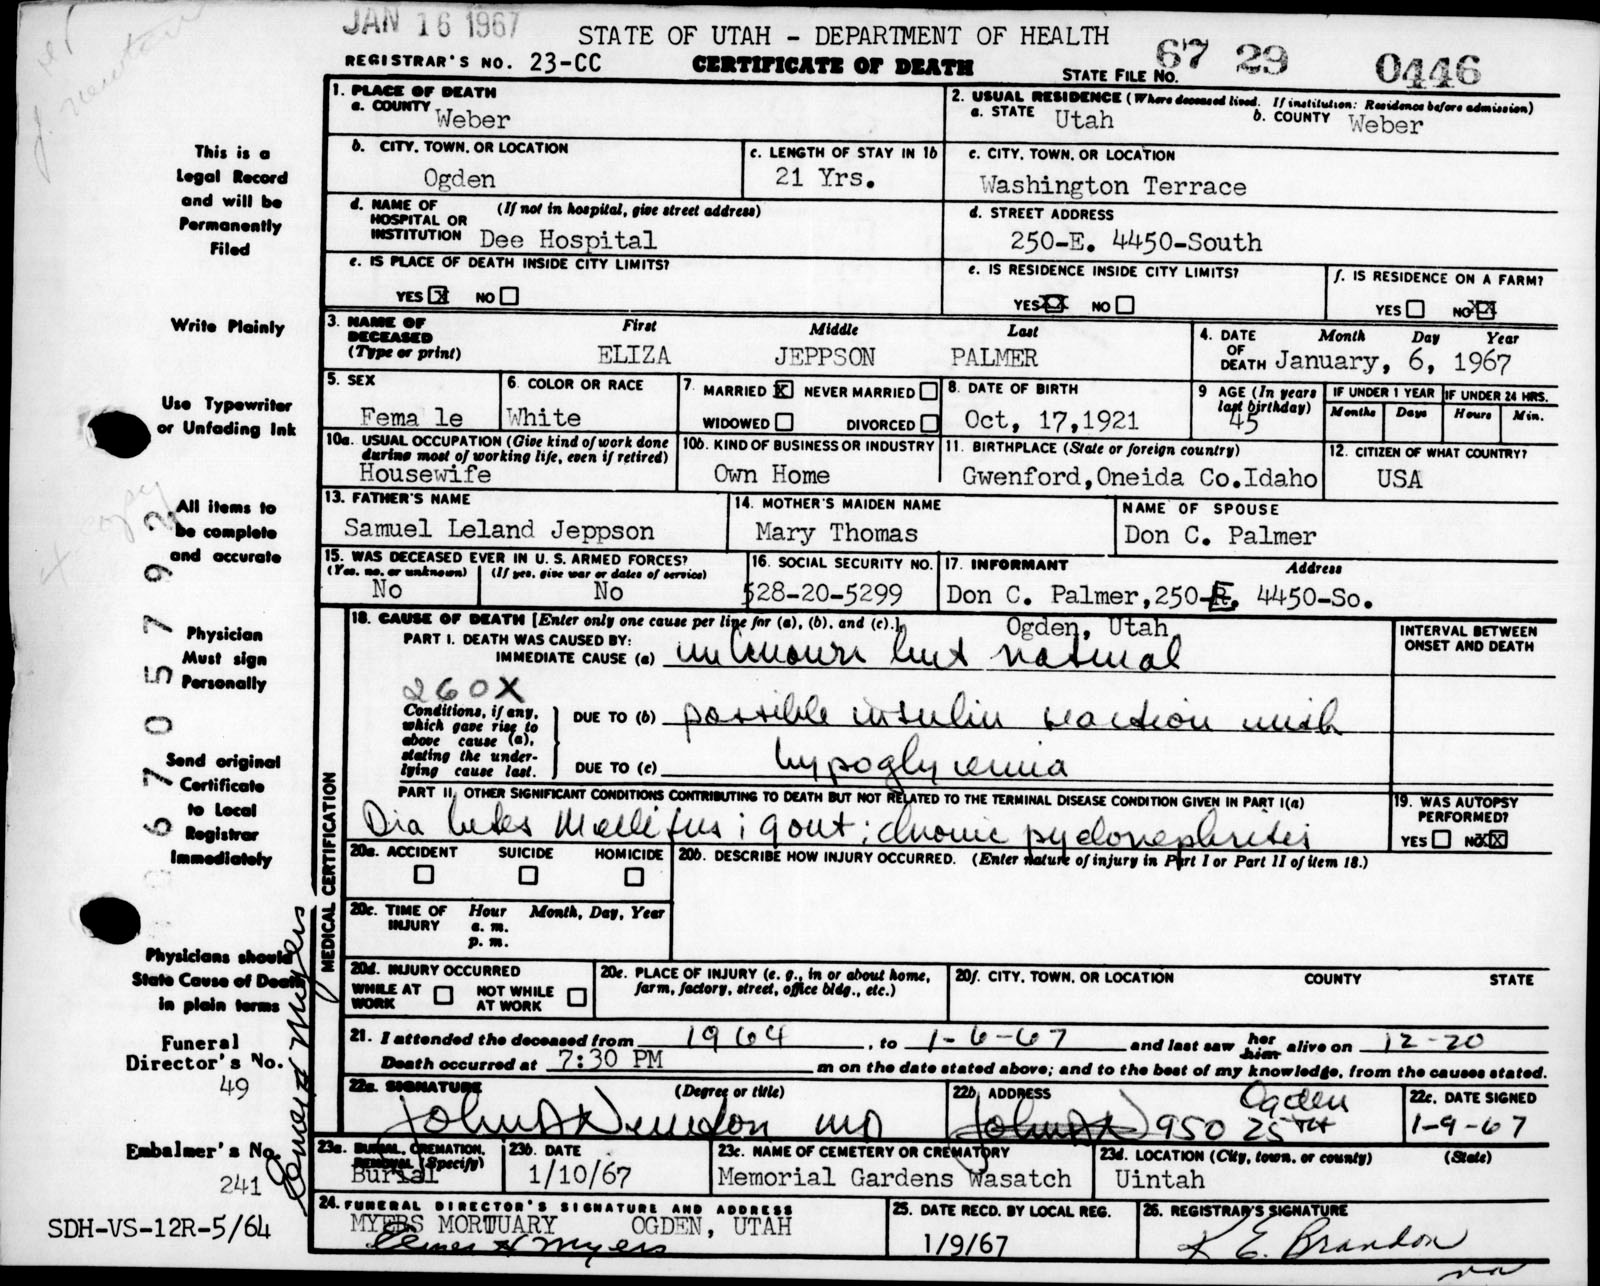 JAN 16 1967
STATE OF UTAH - DEPARTMENT OF HEALTH
REGISTRAR'S NO. 23-CC
CERTIFICATE OF DEATH
STATE FILE NO. 67 29 0446
This is a
Legal Record
and will be
Permanently
Filed
Write Plainly
Use Typewriter
or Unfading Ink
All items to
be complete
and accurate
Physician
Must sign
Personally
Send original
Certificate
to Local
Registrar
Immediately
Physicians should
State Cause of Death
in plain terms
Funeral
Director's No.
49
Embalmer's No.
241
SDH-VS-12R-5/64
copy
670 5792
1. PLACE OF DEATH
a. COUNTY Weber
2. USUAL RESIDENCE (Where deceased lived. If institution: Residence before admission)
a. STATE Utah
b. COUNTY Weber
b. CITY, TOWN, OR LOCATION
Ogden
c. LENGTH OF STAY IN 1b
21 Yrs.
c. CITY, TOWN, OR LOCATION
Washington Terrace
d. NAME OF HOSPITAL OR INSTITUTION (If not in hospital, give street address)
Dee Hospital
d. STREET ADDRESS
250-E. 4450-South
e. IS PLACE OF DEATH INSIDE CITY LIMITS?
YES X NO
e. IS RESIDENCE INSIDE CITY LIMITS?
YES X NO
f. IS RESIDENCE ON A FARM?
YES NO X
3. NAME OF DECEASED (Type or print)
First Middle Last
ELIZA JEPPSON PALMER
4. DATE OF DEATH
Month Day Year
January, 6, 1967
5. SEX
Fema le
6. COLOR OR RACE
White
7. MARRIED X NEVER MARRIED
WIDOWED DIVORCED
8. DATE OF BIRTH
Oct, 17,1921
9 AGE (In years last birthday)
45
IF UNDER 1 YEAR
Months Days
IF UNDER 24 HRS.
Hours Min.
10a. USUAL OCCUPATION (Give kind of work done during most of working life, even if retired)
Housewife
10b. KIND OF BUSINESS OR INDUSTRY
Own Home
11. BIRTHPLACE (State or foreign country)
Gwenford,Oneida Co.Idaho
12. CITIZEN OF WHAT COUNTRY?
USA
13. FATHER'S NAME
Samuel Leland Jeppson
14. MOTHER'S MAIDEN NAME
Mary Thomas
NAME OF SPOUSE
Don C. Palmer
15. WAS DECEASED EVER IN U. S. ARMED FORCES?
(Yes, no, or unknown) (If yes, give war or dates of service)
No No
16. SOCIAL SECURITY NO.
528-20-5299
17. INFORMANT Address
Don C. Palmer,250-E. 4450-So.
Ogden, Utah
MEDICAL CERTIFICATION
18. CAUSE OF DEATH [Enter only one cause per line for (a), (b), and (c).]
PART I. DEATH WAS CAUSED BY:
IMMEDIATE CAUSE (a) unknown but natural
260X
Conditions, if any, which gave rise to above cause (a), stating the underlying cause last.
DUE TO (b) possible insulin reaction with
DUE TO (c) hypoglycemia
INTERVAL BETWEEN ONSET AND DEATH
PART II. OTHER SIGNIFICANT CONDITIONS CONTRIBUTING TO DEATH BUT NOT RELATED TO THE TERMINAL DISEASE CONDITION GIVEN IN PART I(a)
Diabetes Mellitus; gout; chronic pyelonephritis
19. WAS AUTOPSY PERFORMED?
YES NO X
20a. ACCIDENT SUICIDE HOMICIDE
20b. DESCRIBE HOW INJURY OCCURRED. (Enter nature of injury in Part I or Part II of item 18.)
20c. TIME OF INJURY Hour Month, Day, Year
a. m.
p. m.
20d. INJURY OCCURRED
WHILE AT WORK NOT WHILE AT WORK
20e. PLACE OF INJURY (e. g., in or about home, farm, factory, street, office bldg., etc.)
20f. CITY, TOWN, OR LOCATION COUNTY STATE
21. I attended the deceased from 1964, to 1-6-67 and last saw her him alive on 12-20
Death occurred at 7:30 PM m on the date stated above; and to the best of my knowledge, from the causes stated.
22a. SIGNATURE (Degree or title)
MD
22b. ADDRESS
Ogden
950 25th
22c. DATE SIGNED
1-9-67
23a. BURIAL, CREMATION, REMOVAL (Specify)
Burial
23b. DATE
1/10/67
23c. NAME OF CEMETERY OR CREMATORY
Memorial Gardens Wasatch
23d. LOCATION (City, town, or county) (State)
Uintah
24. FUNERAL DIRECTOR'S SIGNATURE AND ADDRESS
MYERS MORTUARY OGDEN, UTAH
25. DATE RECD. BY LOCAL REG.
1/9/67
26. REGISTRAR'S SIGNATURE
K E. Brandon